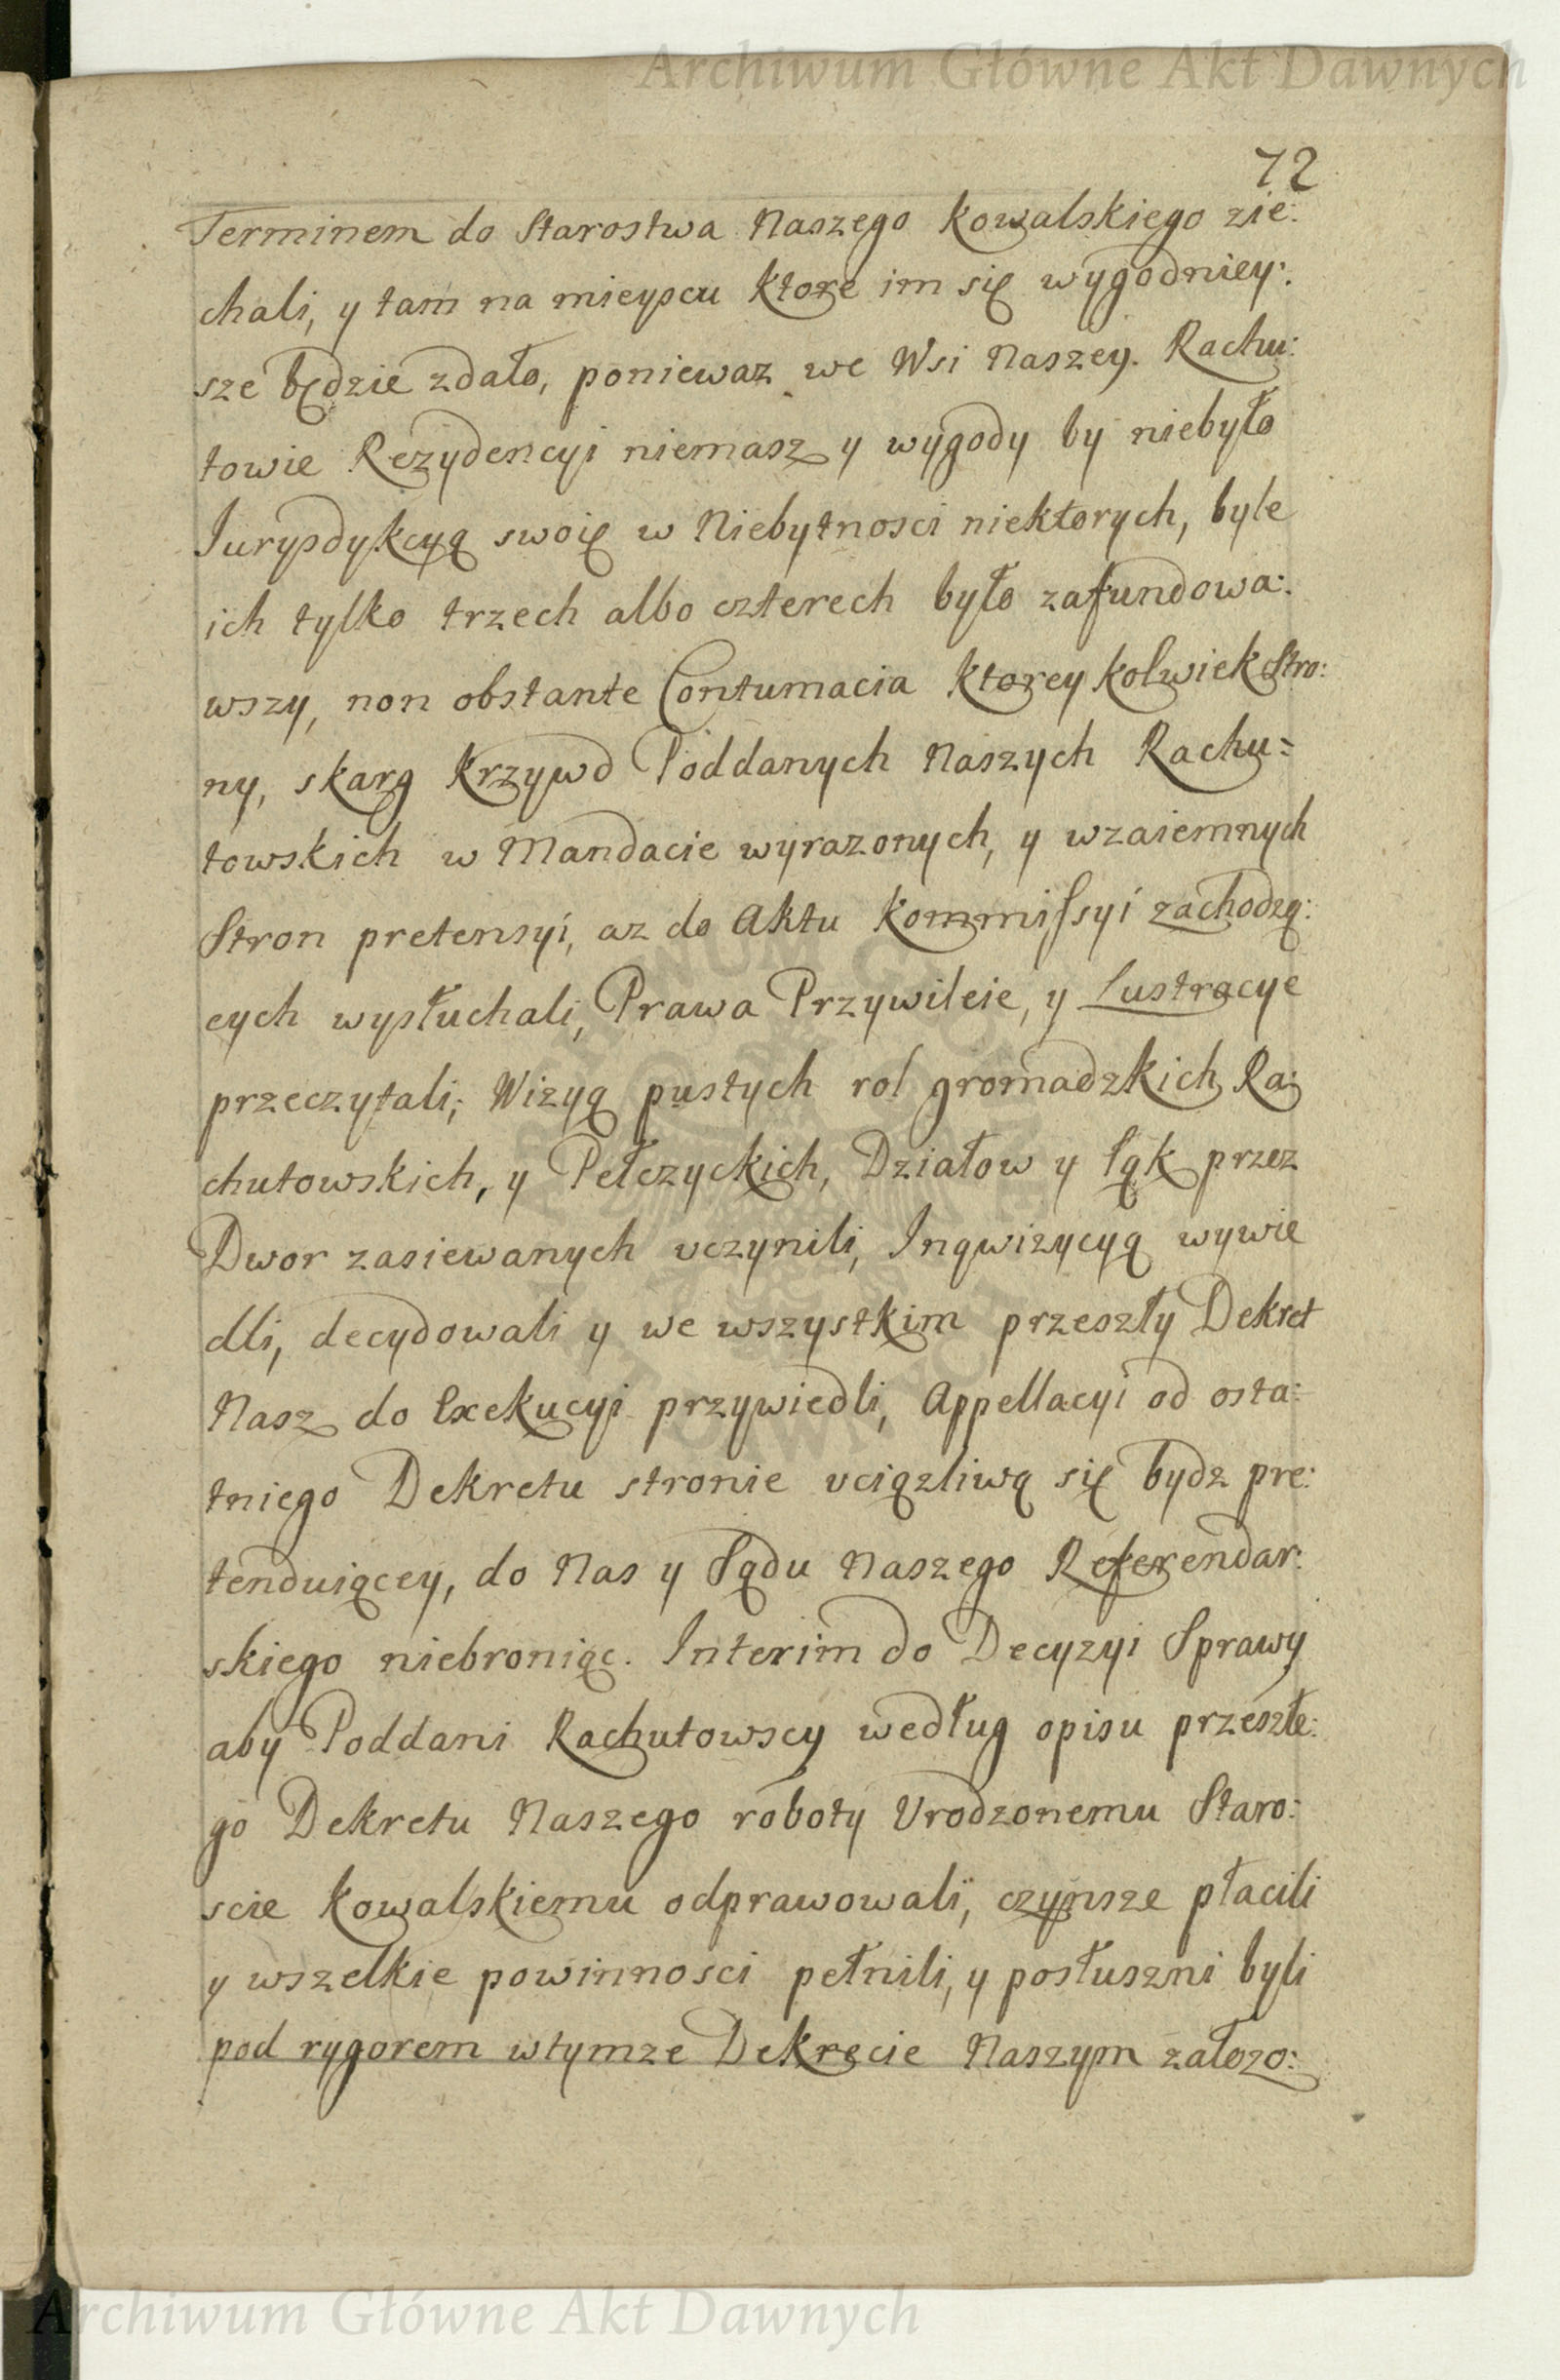 Archiwum Główne Akt Dawnych
72
Terminem do Starostwa Naszego Kowalskiego zie:
chali, y tam na mieyscu ktore im się wygodniey:
sze będzie zdało, poniewaz we Wsi Naszey. Rachu:
towie Rezydencyi niemasz y wygody by niebyło
Jurysdykcyą swoię w Niebytnosci niektorych, byle
ich tylko trzech albo czterech było zafundowa:
wszy, non obstante Contumacia ktorey kolwiek Stro:
ny, skarg krzywd Poddanych Naszych Rachu=
towskich w Mandacie wyrazonych, y wzaiemnych
Stron pretensyi, az do Aktu Kommissyi zachodzą:
cych wysłuchali, Prawa Przywileie, y Lustracye
przeczytali; Wizyą pustych rol gromadzkich Ra:
chutowskich, y Pełczyckich, Działow y Łąk przez
Dwor zasiewanych uczynili, Inqwizycyą wywie
dli, decydowali y we wszystkim przeszły Dekret
Nasz do Exekucyi przywiedli, Appellacyi od osta:
tniego Dekretu stronie uciązliwą się bydz pre:
tenduiącey, do Nas y Sądu Naszego Referendar:
skiego niebroniąc. Interim do Decyzyi Sprawy
aby Poddani Rachutowscy według opisu przeszłe:
go Dekretu Naszego roboty Urodzonemu Staro:
scie Kowalskiemu odprawowali, czynsze płacili
y wszelkie powinnosci pełnili, y posłuszni byli
pod rygorem wtymze Dekrecie Naszym załozo:
Archiwum Główne Akt Dawnych